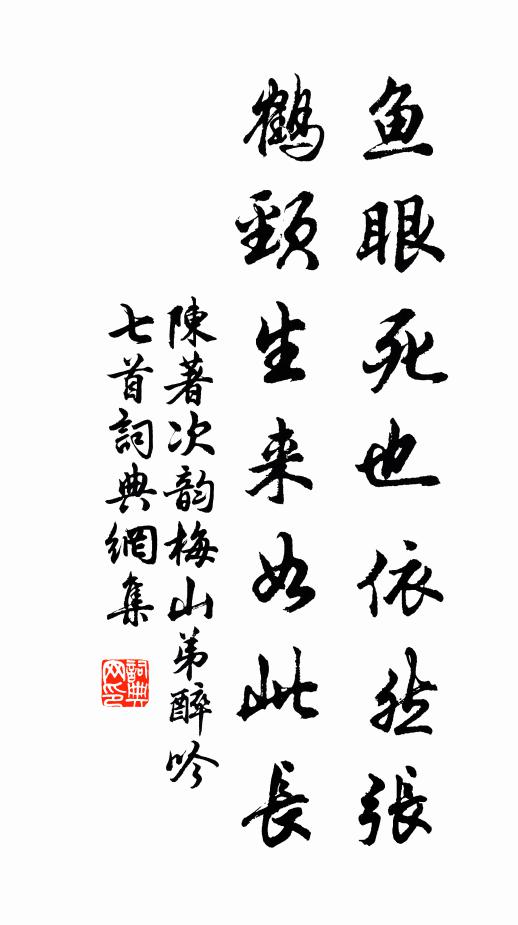 鱼眼死也依然張
鶴頸生来如此長
陳著次韵梅山弟醉吟
七首詞典網集
詞典网印